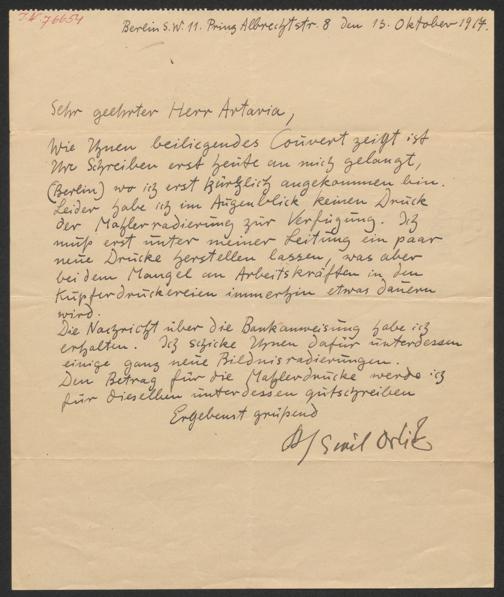 I.N. 76654
Berlin S.W. 11. Prinz Albrechtstr. 8 den 13. Oktober 1917.
Sehr geehrter Herr Artaria,
Wie Ihnen beiliegendes Couvert zeigt ist
Ihr Schreiben erst heute an mich gelangt,
(Berlin) wo ich erst kürzlich angekommen bin.
Leider habe ich im Augenblick keinen Druck
der Mahlerradierung zur Verfügung. Ich
muß erst unter meiner Leitung ein paar
neue Drucke herstellen lassen, was aber
bei dem Mangel an Arbeitskräften in den
Kupferdruckereien immerhin etwas dauern
wird.
Die Nachricht über die Bankanweisung habe ich
erhalten. Ich schicke Ihnen dafür unterdessen
einige ganz neue Bildnisradierungen.
Den Betrag für die Mahlerdrucke werde ich
für dieselben unterdessen gutschreiben
Ergebenst grüßend
Emil Orlik